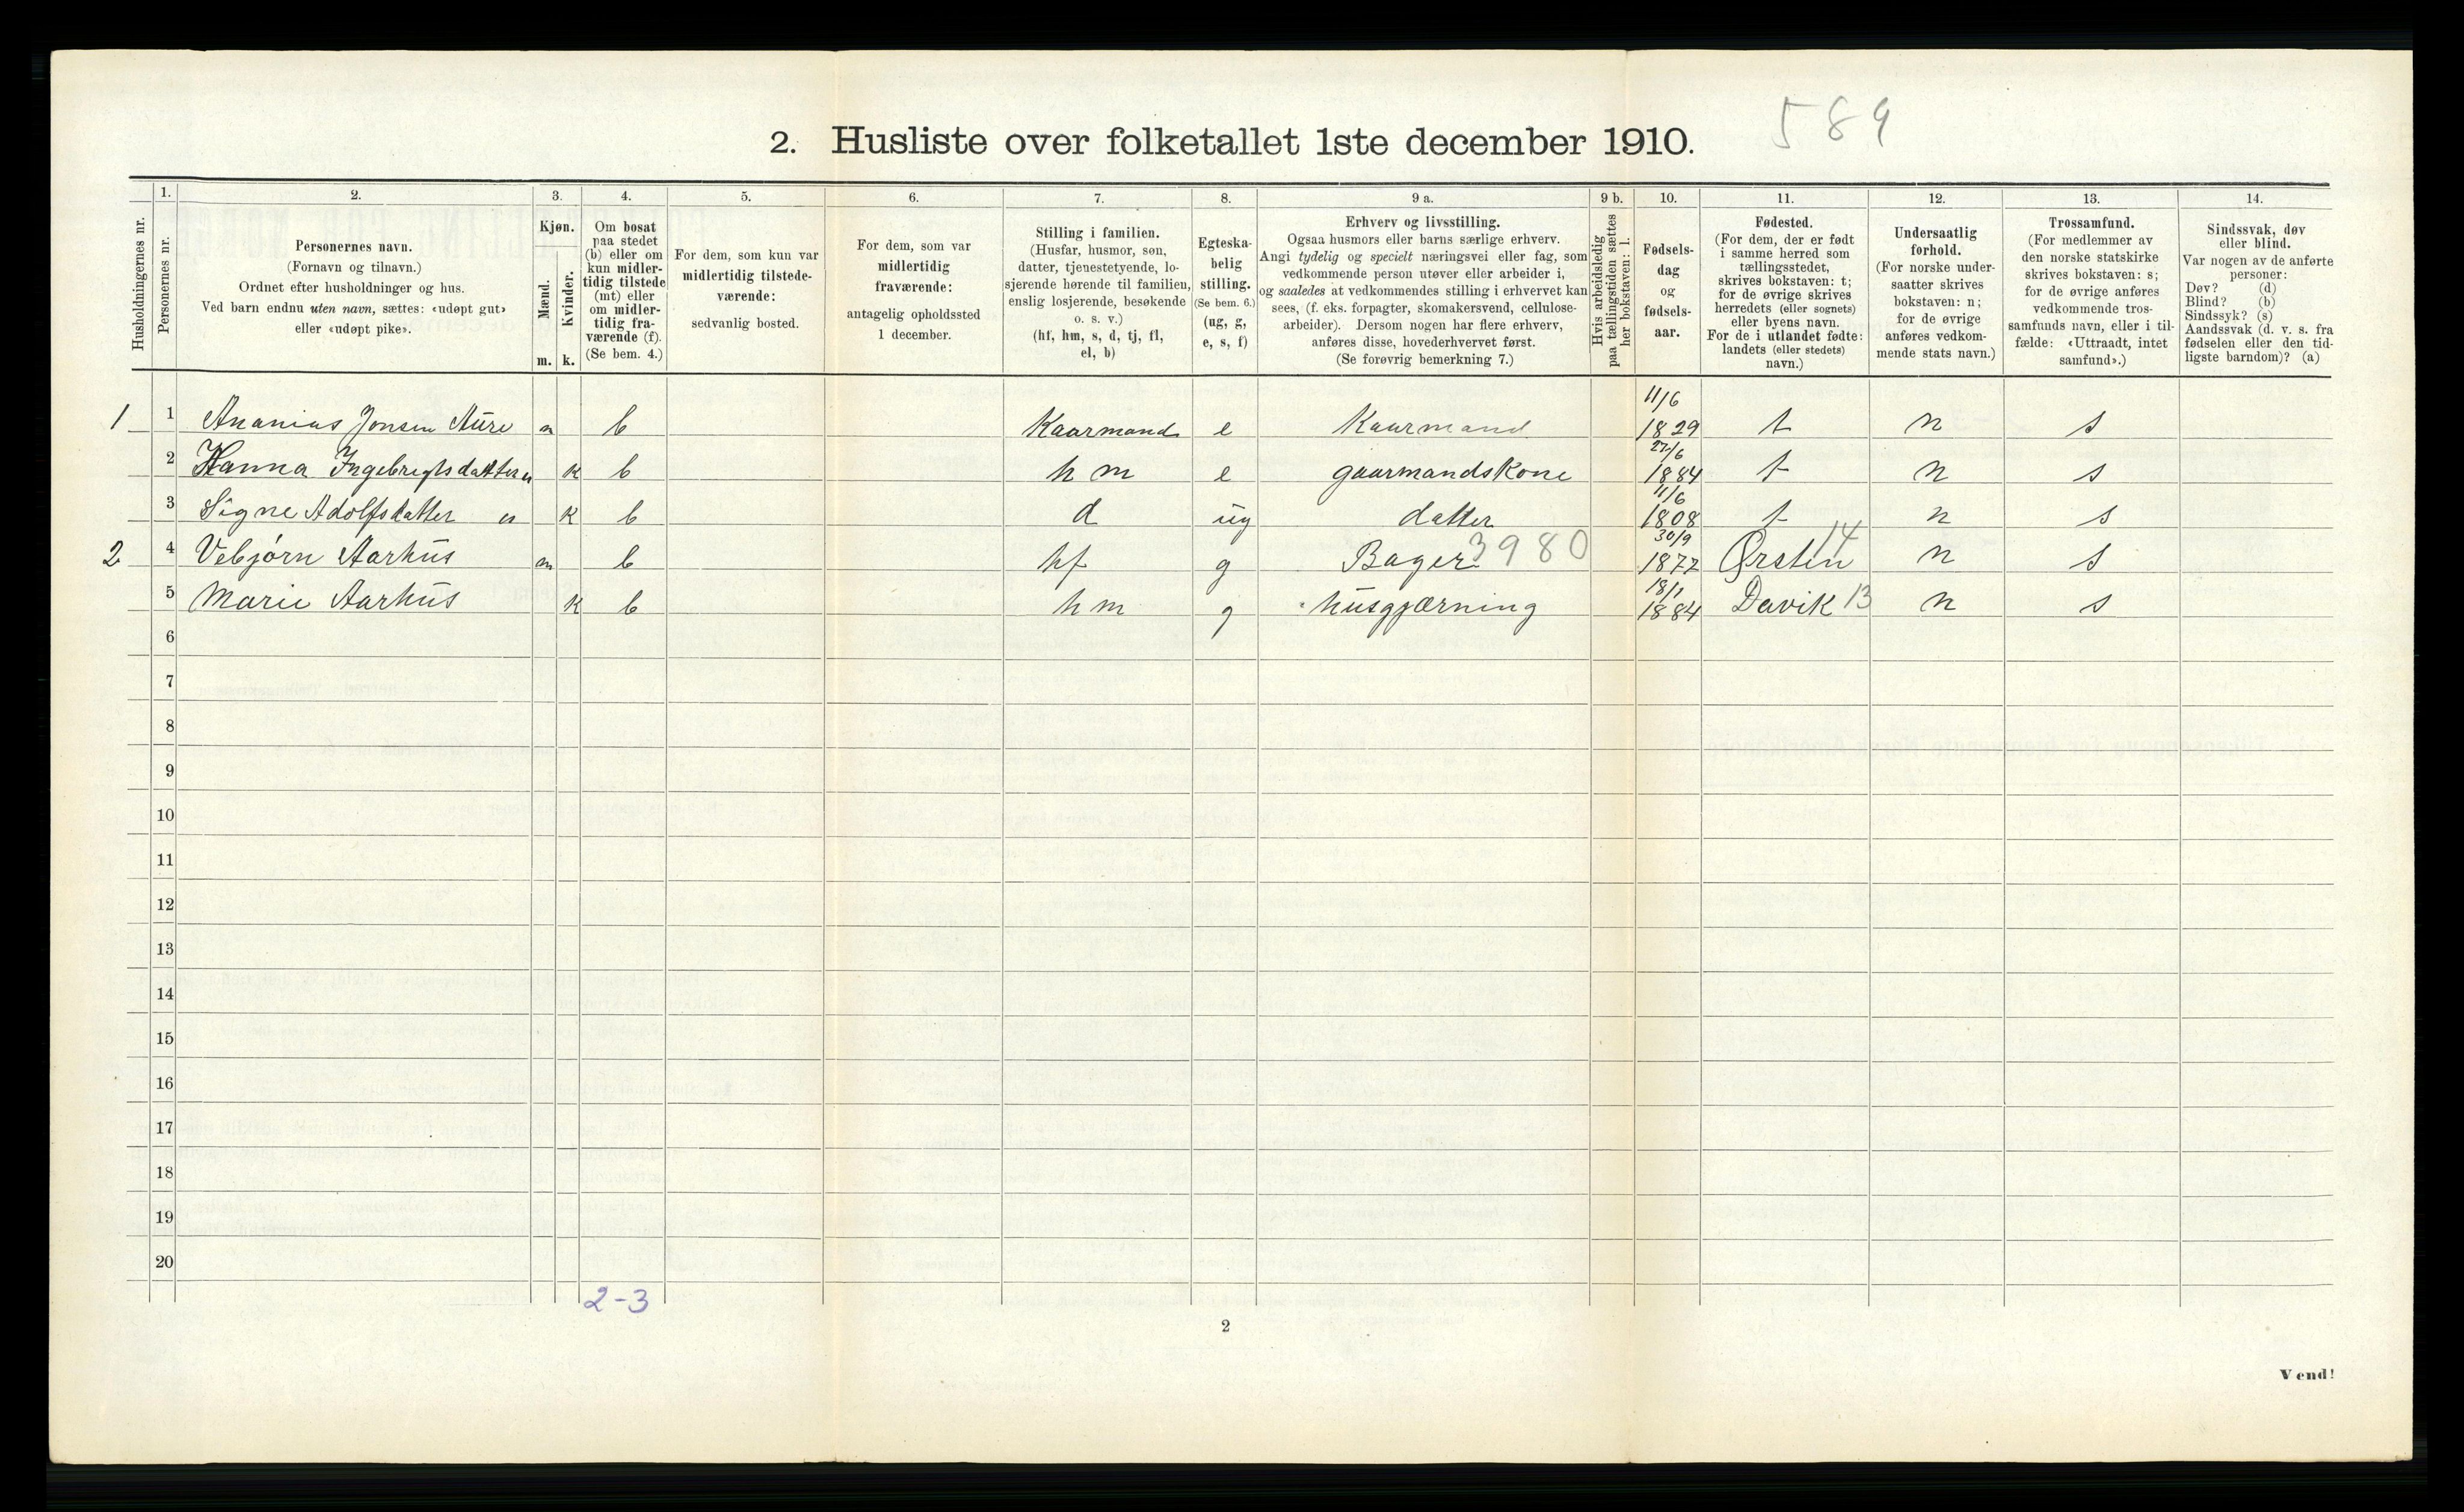 589
2. Husliste over folketallet 1ste december 1910.
1. 2. 3. 4. 5. 6. 7. 8. 9 a. 9 b. 10. 11. 12. 13. 14.
Husholdningernes nr.
Personernes nr.
Personernes navn.
(Fornavn og tilnavn.)
Ordnet efter husholdninger og hus.
Ved barn endnu uten navn, sættes: «udøpt gut»
eller «udøpt pike».
Kjøn.
Mænd.
Kvinder.
m. k.
Om bosat
paa stedet
(b) eller om
kun midler-
tidig tilstede
(mt) eller
om midler-
tidig fra-
værende (f).
(Se bem. 4.)
For dem, som kun var
midlertidig tilstede-
værende:
sedvanlig bosted.
For dem, som var
midlertidig
fraværende:
antagelig opholdssted
1 december.
Stilling i familien.
(Husfar, husmor, søn,
datter, tjenestetyende, lo-
sjerende hørende til familien,
enslig losjerende, besøkende
o. s. v.)
(hf, hm, s, d, tj, fl,
el, b)
Egteska-
belig
stilling.
(Se bem. 6.)
(ug, g,
e, s, f)
Erhverv og livsstilling.
Ogsaa husmors eller barns særlige erhverv.
Angi tydelig og specielt næringsvei eller fag, som
vedkommende person utøver eller arbeider i,
og saaledes at vedkommendes stilling i erhvervet kan
sees, (f. eks. forpagter, skomakersvend, cellulose-
arbeider). Dersom nogen har flere erhverv,
anføres disse, hovederhvervet først.
(Se forøvrig bemerkning 7.)
Hvis arbeidsledig
paa tællingstiden sættes
her bokstaven: l.
Fødsels-
dag
og
fødsels-
aar.
Fødested.
(For dem, der er født
i samme herred som
tællingsstedet,
skrives bokstaven: t;
for de øvrige skrives
herredets (eller sognets)
eller byens navn.
For de i utlandet fødte:
landets (eller stedets)
navn.)
Undersaatlig
forhold.
(For norske under-
saatter skrives
bokstaven: n;
for de øvrige
anføres vedkom-
mende stats navn.)
Trossamfund.
(For medlemmer av
den norske statskirke
skrives bokstaven: s;
for de øvrige anføres
vedkommende tros-
samfunds navn, eller i til-
fælde: «Uttraadt, intet
samfund».)
Sindssvak, døv
eller blind.
Var nogen av de anførte
personer:
Døv? (d)
Blind? (b)
Sindssyk? (s)
Aandssvak (d. v. s. fra
fødselen eller den tid-
ligste barndom)? (a)
1 1 Ananias Jonsen Aure m b Kaarmand e Kaarmand 11/6 1829 t n s
2 Hanna Ingebregtsdatter " k b hm e gaarmandskone 27/6 1884 t n s
3 Signe Adolfsdatter " k b d ug datter 11/6 1808 t n s
2 4 Vebjørn Aarhus m b hf g Bager 3980 30/9 1877 Ørsten 14 n s
5 Marie Aarhus k b hm g husgjærning 18/1 1884 Davik 13 n s
6
7
8
9
10
11
12
13
14
15
16
17
18
19
20
2-3
2
Vend!